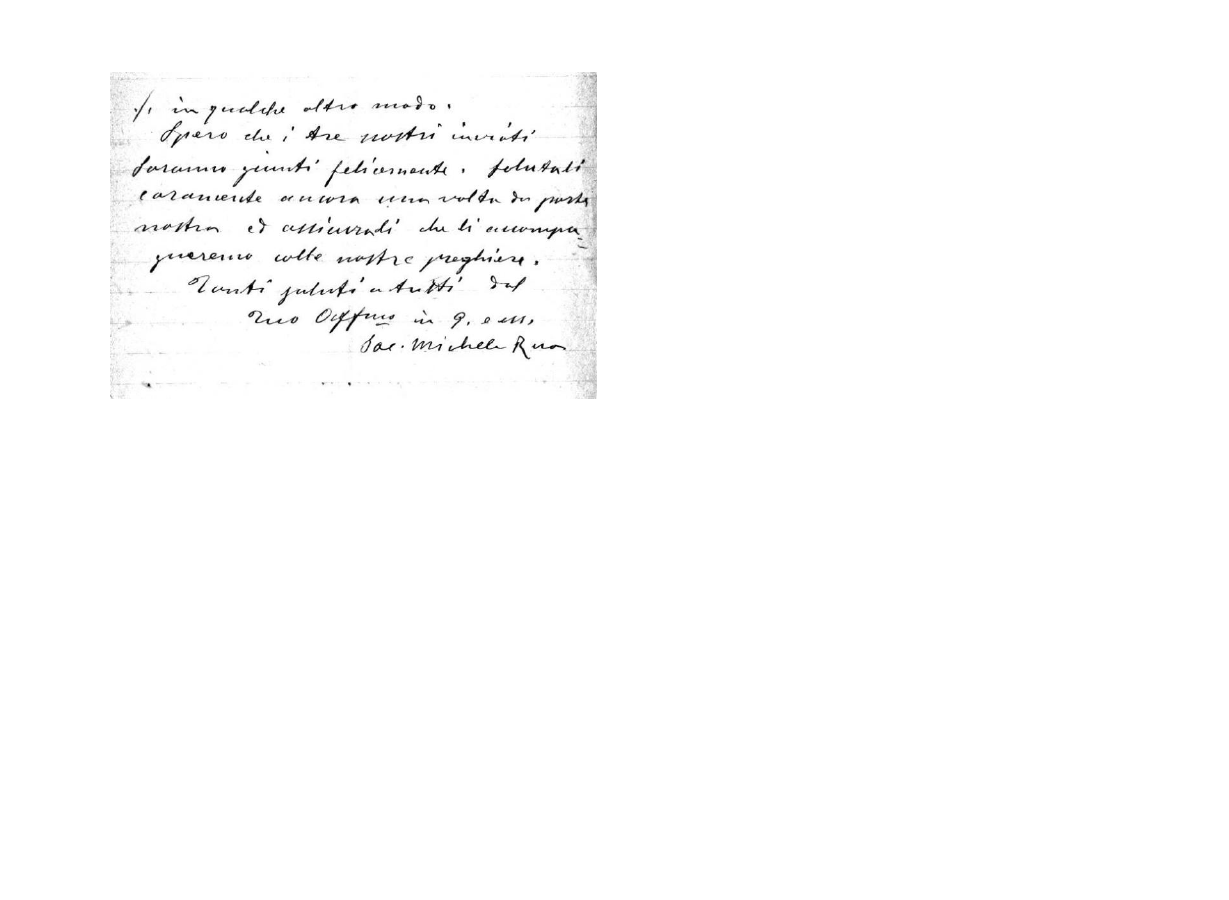 ./. in qualche altro modo.
Spero che i tre nostri inviati
saranno giunti felicemente. Salutali
caramente ancora una volta da parte
nostra ed assicurali che li accompa=
gneremo colle nostre preghiere.
Tanti saluti a tutti dal
Tuo Aff.mo in G. e M.
Sac. Michele Rua